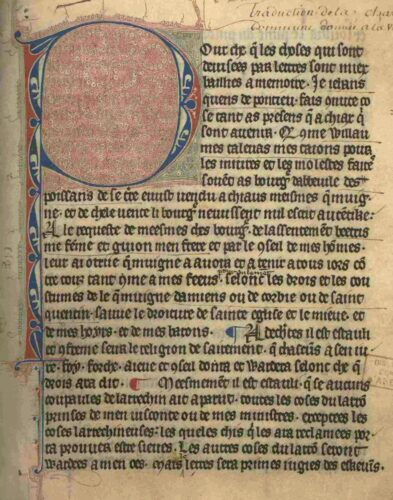 traduction de la char
Commune donnée a la v
Our che q̄ les choses qui sont
devisees par lettres sont miex
baillies a memoire. Je iehans
quens de pontieu, fais
se tant as presens q̄ a chiax q̄
sont avenir. Q̄ 9me willau
mes talevas mes taions pour
les iniures et les molestes faites
souēt as bourḡ dabbeuile des
poissans de se tēre eust vendu a chiaus meismes q̄muig
ne. et de chele vente li bourḡ neuissent nul escrit autentike:
A le requeste de meesmes ches bourḡ. de lassentement beetris
me feme et guion mon frere et par le 9seil de mes hōmes.
leur ai otrie q̄muigne a avoir et a tenir a tous iors 9t̄
tre tout tant 9me a mes feeus. selonc les drois et les cou
stumes de le q̄muigne damiens ou de corbie ou de saint
quentin. sauve le droiture de sainte eglise et le mieue. et
de mes hoirs. et de mes barons. ¶ Adechtes il est estauli
et 9ferme seur le religion de sairement. q̄ chascūs a sen iu
re. foy. forche. aieue et 9seil doinst et wardera selonc che q̄
drois ara dit. ¶ Mesmement il est estauli. q̄ se aucuns
coupaules de larrechin ait aparut. toutes les coses du larrō
prinses de men visconte ou de mes ministres. exceptees les
coses larrechineuses: les queles chis q̄ les ara reclamees por
ra prouver estre sienes. Les autres coses du larrō serōt
wardees a men oes. Mais le lerres sera primes iugies des eskevīs.